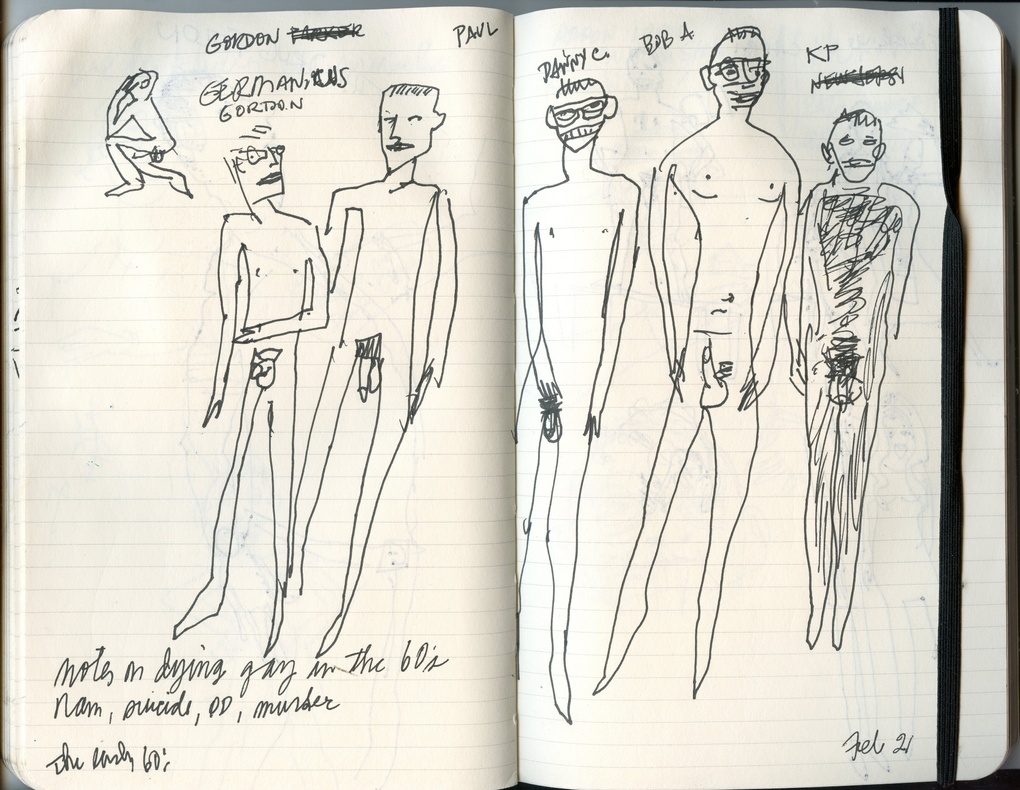 GORDON PARKER
PAUL
GERMAN,
GORDON
DANNY C.
BOB A
KP
notes on dying gay in the 60's
Nam, suicide, OD, murder
The early 60's
Feb 21